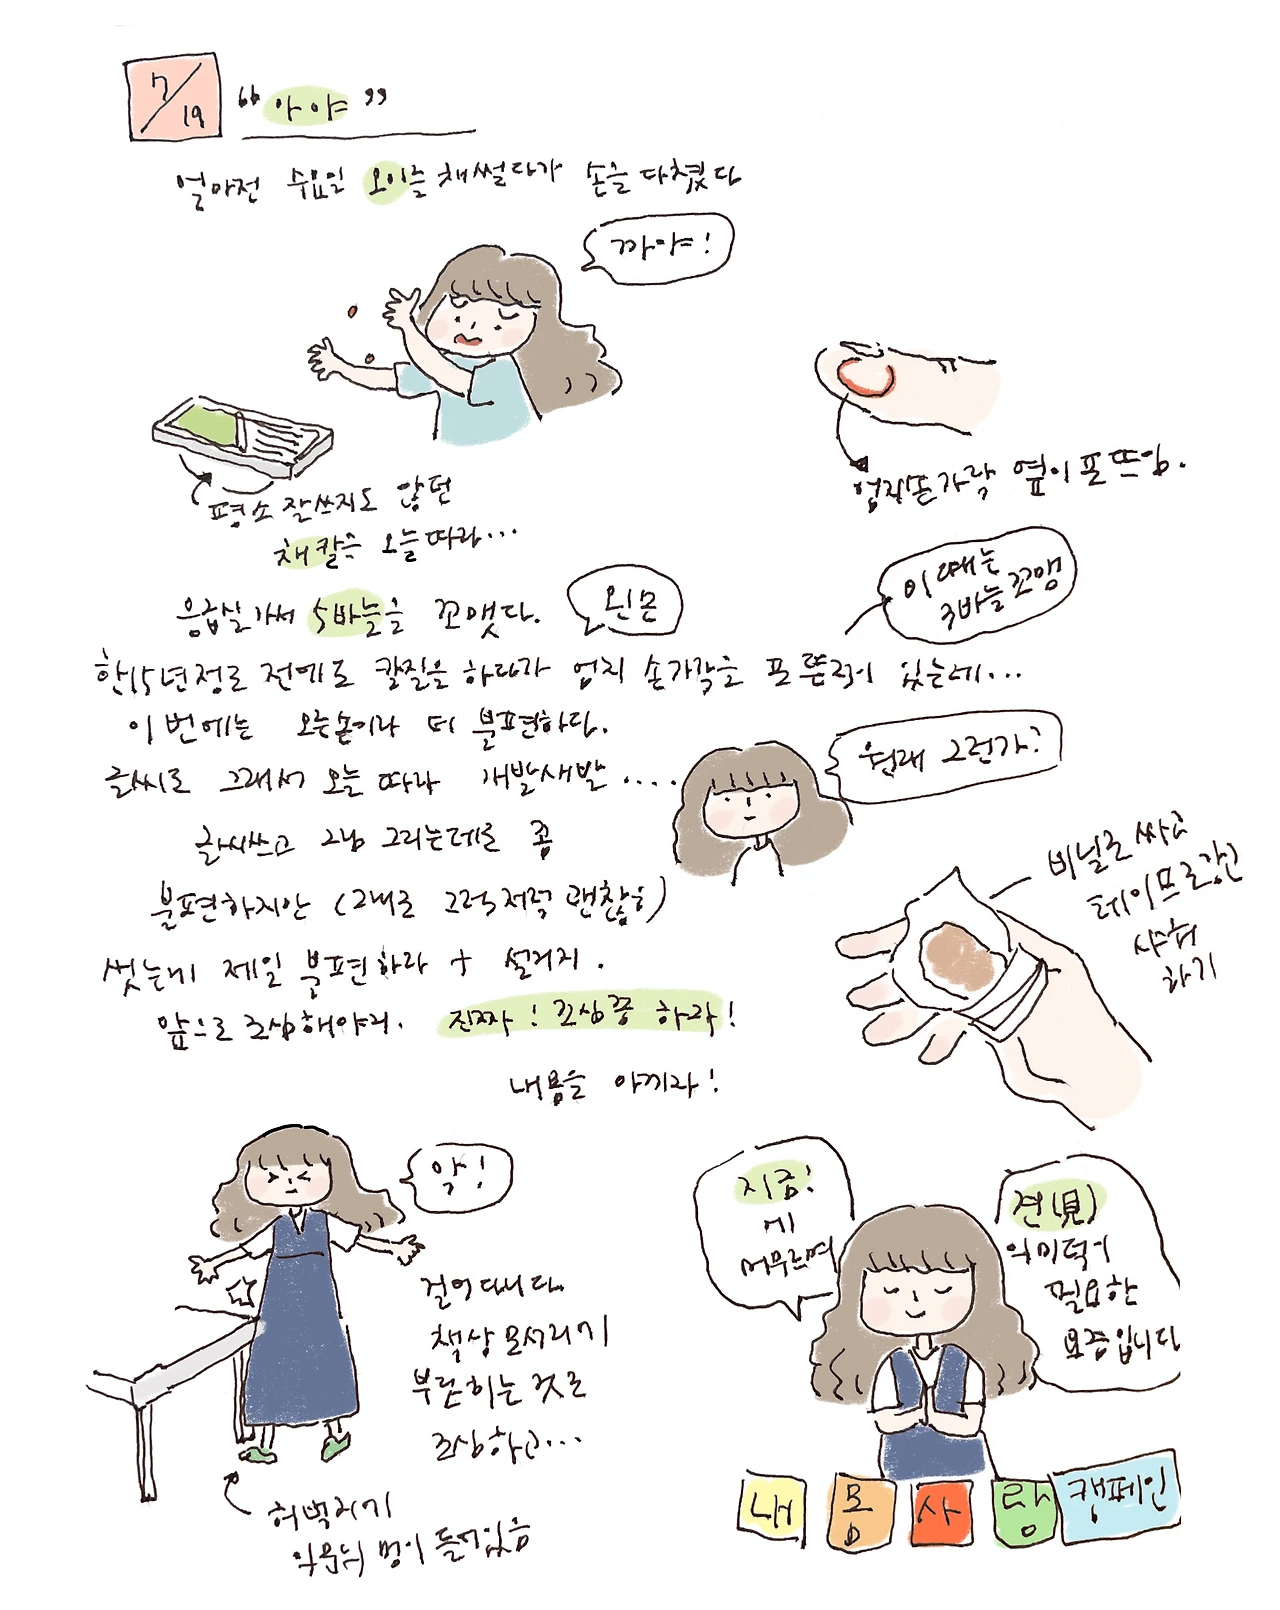 7/19 "아야"
얼마전 수요일 오이를 채썰다가 손을 다쳤다
까야!
평소 잘쓰지도 않던
채칼을 오늘따라...
엄지손가락 옆이 포 뜨임.
응급실가서 5바늘을 꼬맸다.
왼손
이때는
3바늘꼬맴
한15년정도 전에도 칼질을 하다가 엄지 손가락을 포 뜬적이 있는데...
이번에는 오른손이라 더 불편하다.
글씨도 그래서 오늘 따라 개발새발....
원래 그런가?
글씨쓰고 그냥 그리는데는 좀
불편하지만 (그래도 그럭저럭 괜찮음)
씻는게 제일 불편하라 + 설거지.
앞으로 조심해야지. 진짜! 조심좀 하라!
내몸을 아끼라!
비닐로 싸고
테이프로감고
샤워
하기
악!
걸어다니다
책상 모서리기
부딪히는 것도
조심하고...
허벅지기
의문의 멍이 들어있음
지금!
에
머무르며
견(見)
의미덕이
필요한
요즘입니다
내 몸 사랑 캠페인